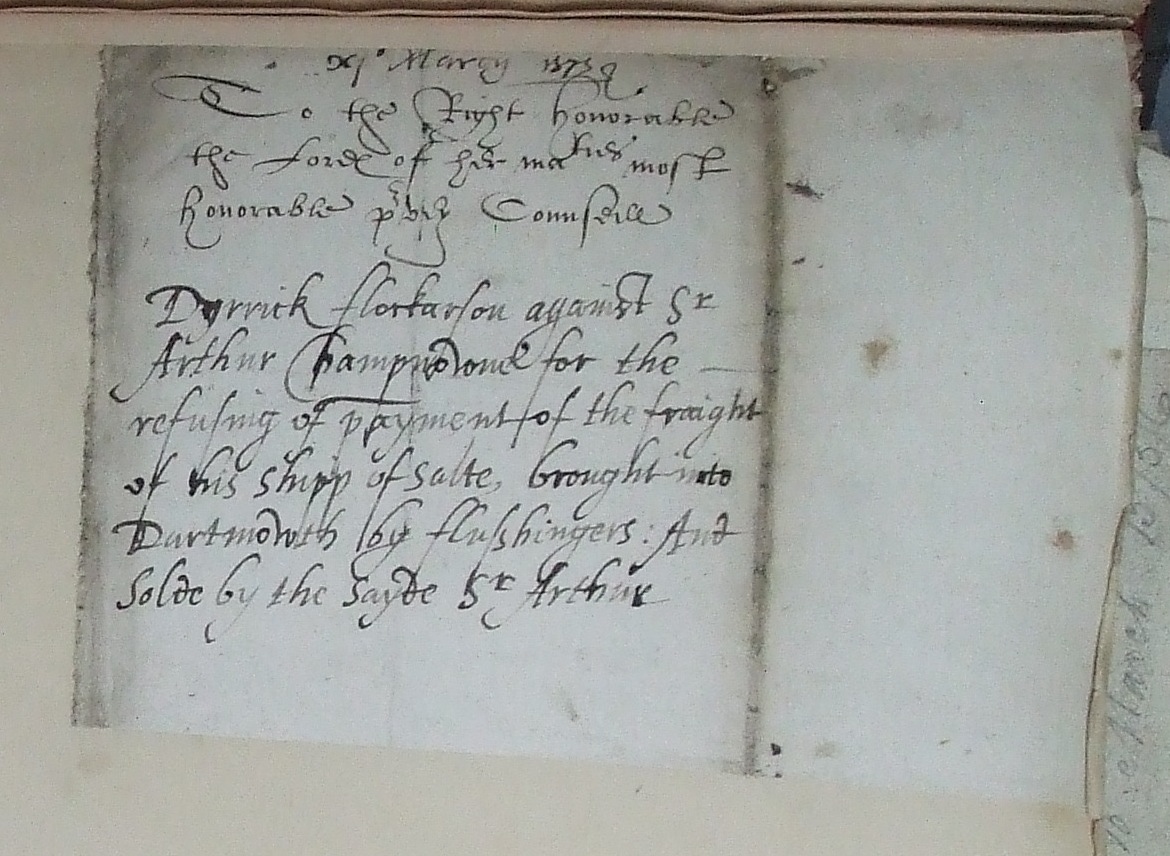 xj° Marcij 157
To the Right honorable
the Lordℯ of her maties most
honorable privy Counseill
Dyrrick flockarson against Sr
Arthur Champnowne for the
refusing of payment of the fraight
of his shipp of Salte, brought into
Dartmowth by flusshingers: And
Solde by the Sayde Sr Arthur
March 1575/6